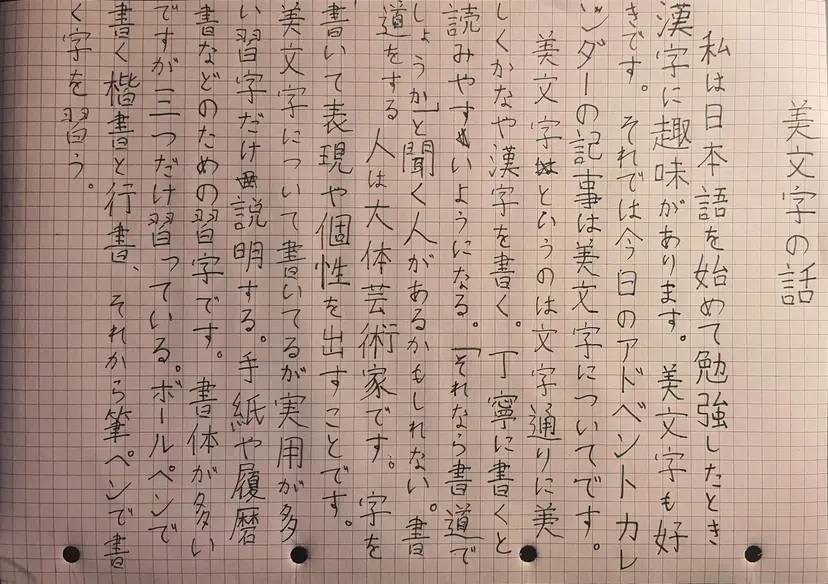 美文字の話
私は日本語を始めて勉強したとき
漢字に趣味があります。美文字も好
きです。それでは今日のアドベントカレ
ンダーの記事は美文字についてです。
美文字というのは文字通りに美
しくかなや漢字を書く。丁寧に書くと
読みやすいようになる。「それなら書道で
しょうか」と聞く人があるかもしれない。書
道をする人は大体芸術家です。字を
書いて表現や個性を出すことです。
美文字について書いてるが実用が多
い習字だけ説明する。手紙や履暦
書などのための習字です。書体が多い
ですが三つだけ習っている。ボールペンで
書く楷書と行書、それから筆ペンで書
く字を習う。